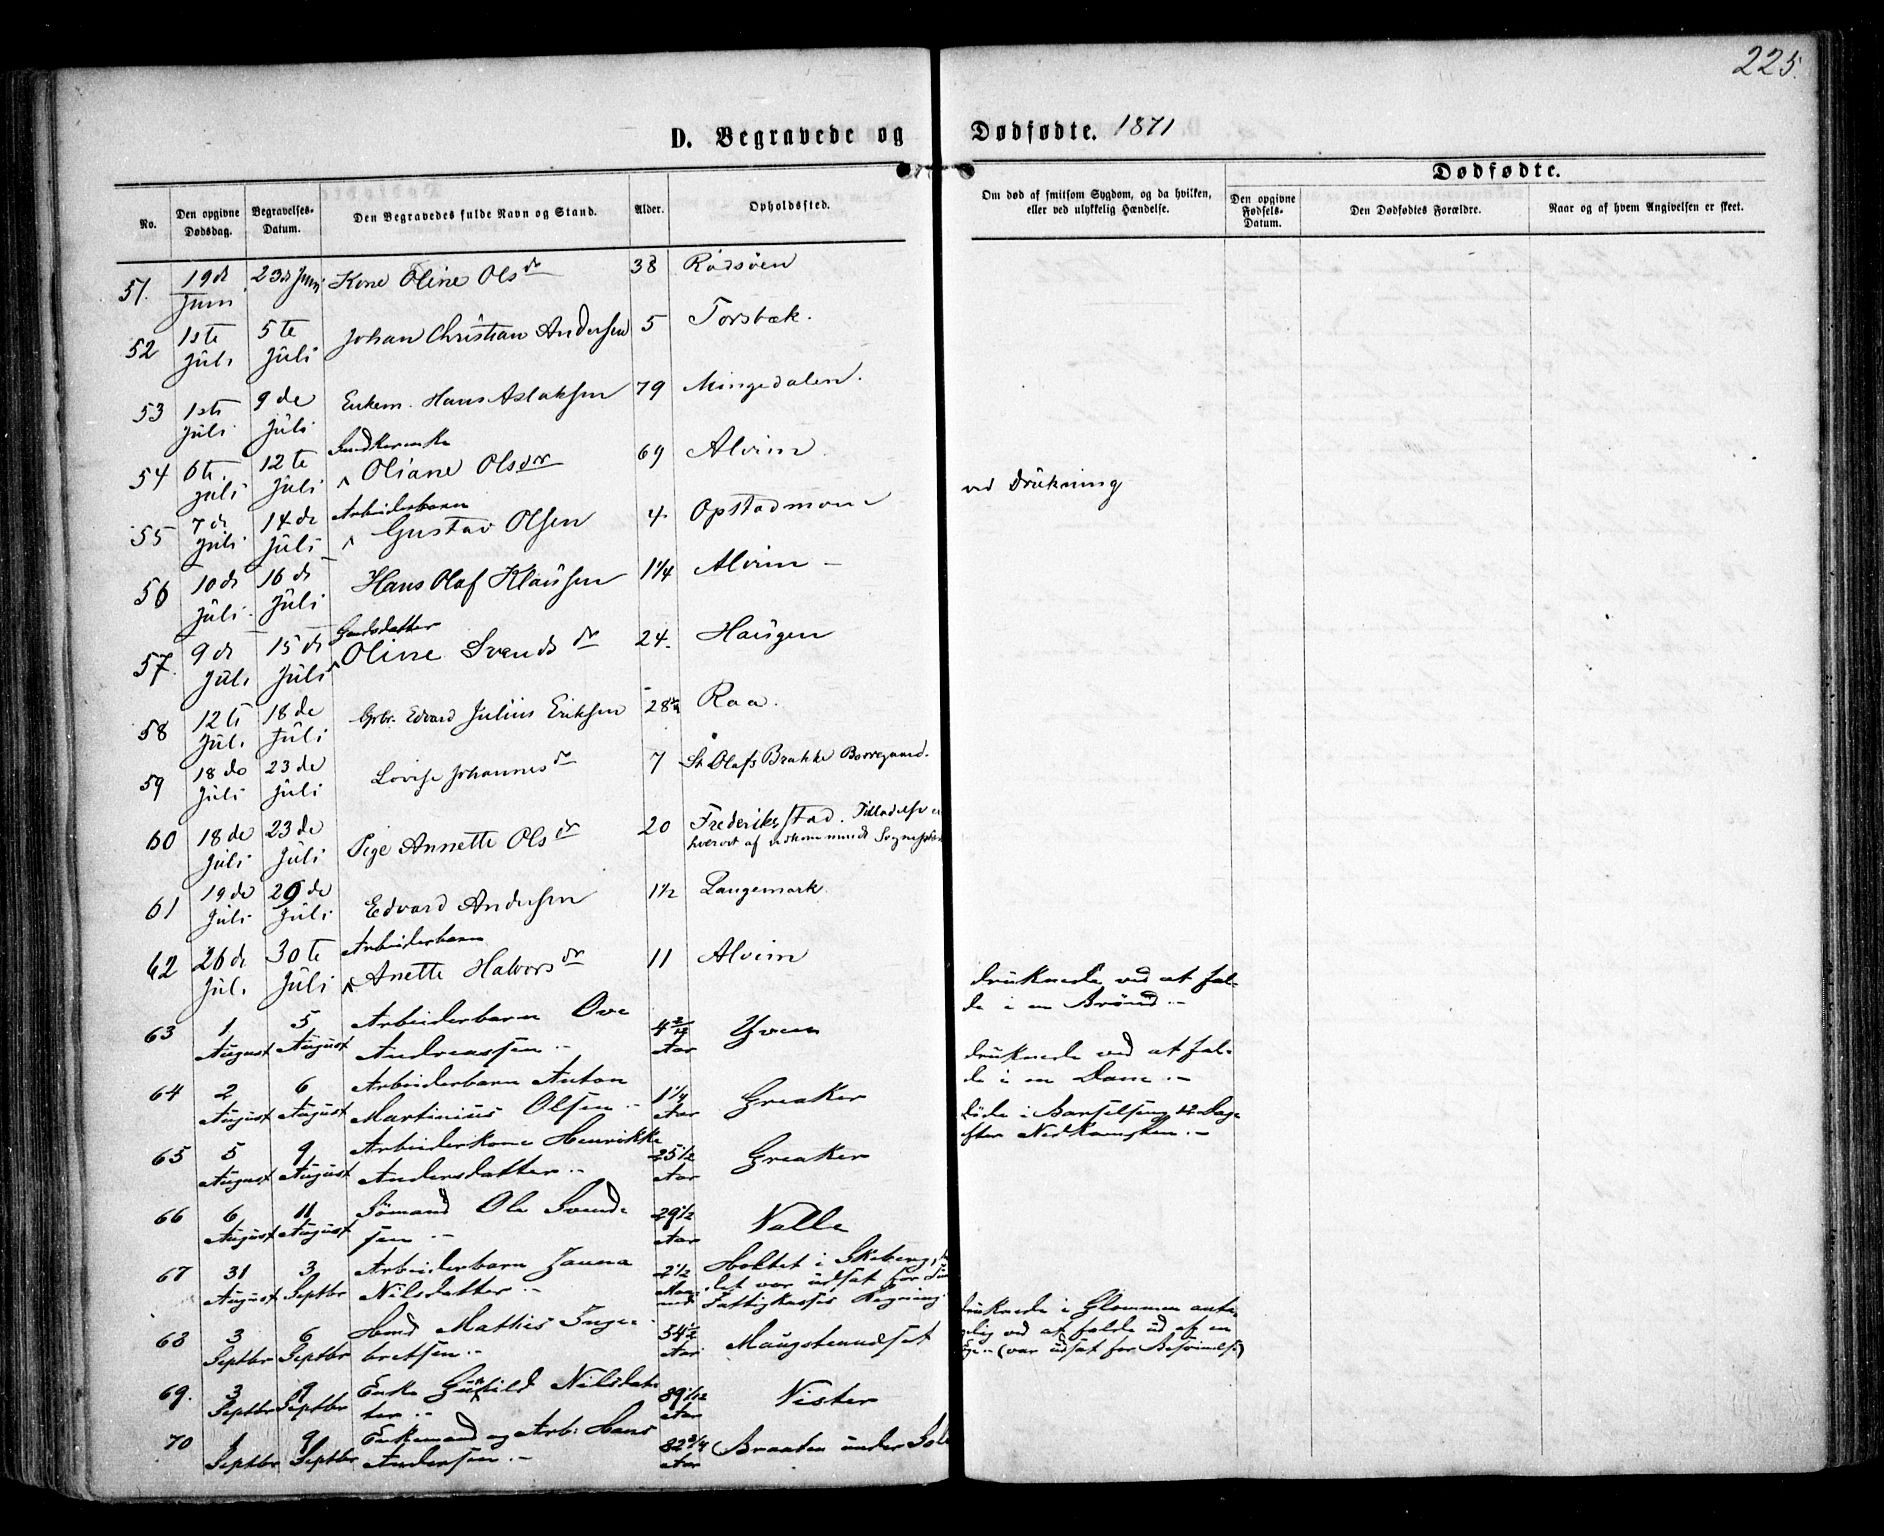 225.
D. Begravede og Dødfødte. 1871
No.
Den opgivne Dødsdag.
Begravelses-Datum.
Den Begravedes fulde Navn og Stand.
Alder.
Opholdssted.
Om død af smitsom Sygdom, og da hvilken, eller ved ulykkelig Hændelse.
Dødfødte.
Den opgivne Fødsels-Datum.
Den Dødfødtes Forældre.
Naar og af hvem Angivelsen er skeet.
51. 19de Juni 23de Juni Kone Oline Olsdr 38 Rødsøen
52 1ste Juli 5te Juli Johan Christian Andersen 5 Torsbæk.
53 1ste Juli 9de Juli Enkem. Hans Aslaksen 79 Mingedalen.
54 6te Juli 12te Juli Oliane Olsdr 69 Alvim
55 7de Juli 14de Juli Arbeiderbarn Gustav Olsen 4. Opstadmoen ved Drukning
56 10de Juli 16de Juli Hans Olaf Klausen 1 1/4 Alvim
57. 9de Juli 15de Juli Gaardsdatter Oline Svendsdr 24. Haugen
58 12te Juli 18de Juli Grbr. Edvard Julius Eriksen 28 Raa.
59 18de Juli 23de Juli Lovise Johannesdr 7 St. Olafs Brakke Borregaard.
60 18de Juli 23de Juli Pige Annette Olsdr 20 Frederiksstad. Tilladelse er
hvervet af vedkommende Sognepræst
61 19de Juli 29de Juli Edvard Andersen 1 1/2 Langemark.
62 26de Juli 30te Juli Arbeiderbarn Anette Halvorsdr 11 Alvim
63 1 August 5 August Arbeiderbarn Ove Andreassen 4 2/12 Aar Yven druknede ved at falde i en Brønd.
64 2 August 6 August Arbeiderbarn Anton Martinius Olsen 1 1/4 Aar Greaker druknede ved at falde i en Dam.
65 5 August 9 August Arbeiderkone Henrikke Andersdatter 25 1/2 Aar Greaker døde i Barselseng 12 Dage efter Nedkomsten.
66 6 August 11 August Sømand Ole Svendsen 29 1/2 Aar Valle
67 31 August 3 Septbr Arbeiderbarn Janna Nilsdatter 2 1/2 Maaned Holtet i Skeberg,
det var udsat for
Fattigkasses Regning
68 3 Septbr 6 Septbr Hmd Mathis Ingebretsen 54 1/2 Aar Maugstenudset druknede i Glommen antagelig ved at falde ud af en
(var udsat for Besvimelse)
69. 3 Septbr 9 Septbr Enke Gunhild Nilsdatter 89 1/12 Aar Nister
70 1 Septbr 9 Septbr Enkemand og Arb: Hans Andersen 82 3/4 Aar Braaten under Sole